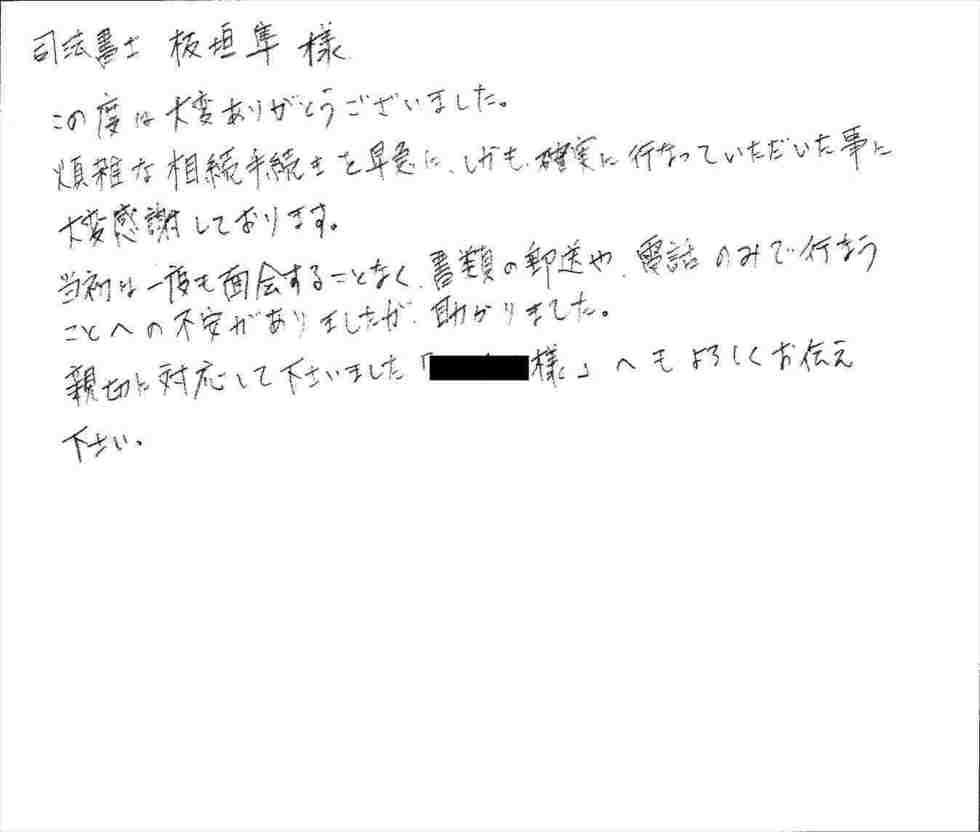 司法書士 板垣隼 様
この度は大変ありがとうございました。
煩雑な相続手続きを早急に、しかも、確実に行なっていただいた事に
大変感謝しております。
当初は一度も面会することなく、書類の郵送や、電話のみで行なう
ことへの不安がありましたが、助かりました。
親切に対応して下さいました「 様」へもよろしくお伝え
下さい。